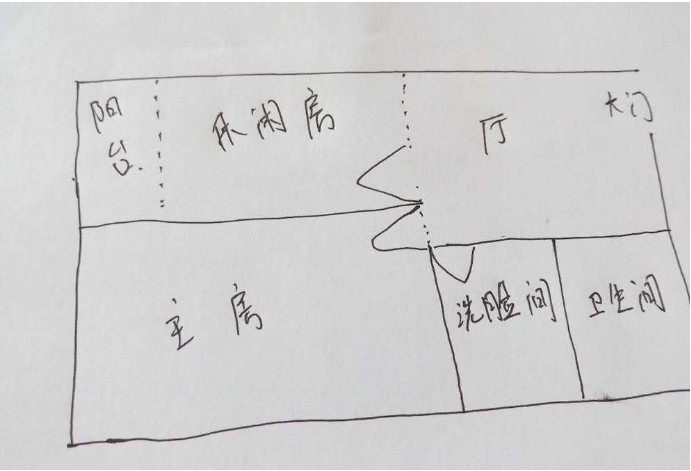 阳台
休闲房
厅
大门
主房
洗脸间
卫生间